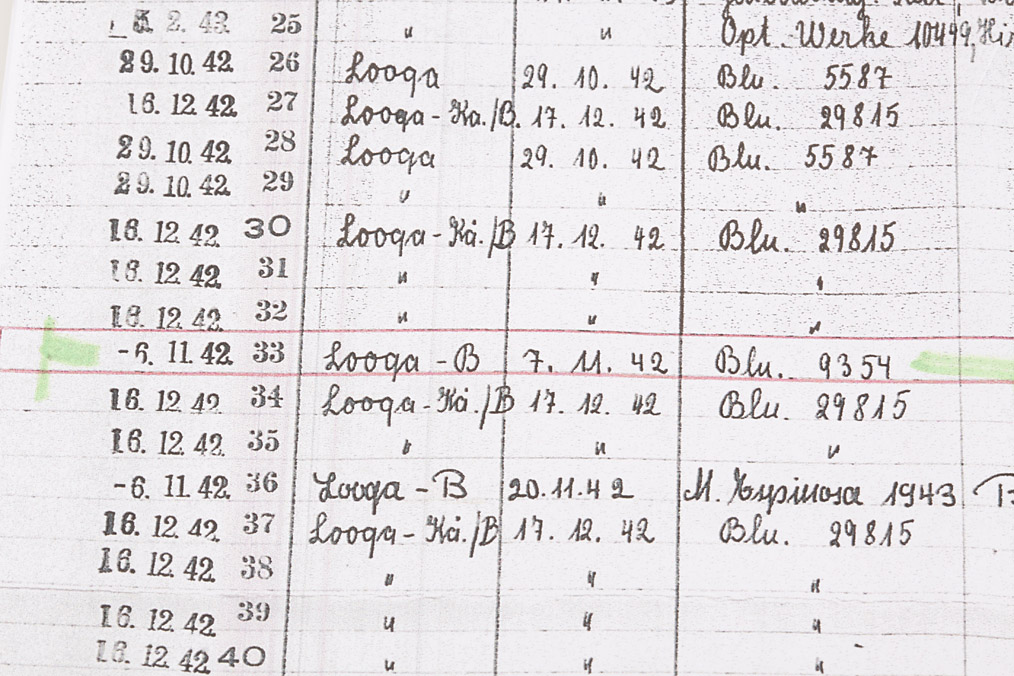 2. 43 25 " " Opt. Werke 10499,
29. 10. 42 26 Looga 29. 10. 42 Blu. 5587
16. 12. 42 27 Looga-Kä./B. 17. 12. 42 Blu. 29815
29. 10. 42 28 Looga 29. 10. 42 Blu. 5587
29. 10. 42 29 " " "
16. 12. 42 30 Looga-Kä./B 17. 12. 42 Blu. 29815
16. 12. 42 31 " " "
16. 12. 42 32 " " "
-6. 11. 42 33 Looga-B 7. 11. 42 Blu. 9354
16. 12. 42 34 Looga-Kä./B 17. 12. 42 Blu. 29815
16. 12. 42 35 " " "
-6. 11. 42 36 Looga-B 20.11.42 M. Espinosa 1943
16. 12. 42 37 Looga-Kä./B 17. 12. 42 Blu. 29815
16. 12. 42 38 " " "
16. 12. 42 39 " " "
16. 12. 42 40 " " "